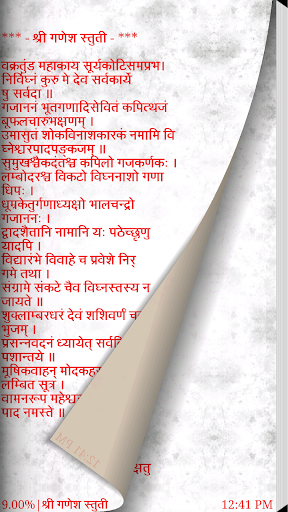 *** - श्री गणेश स्तुती - ***
वक्रतुंड महाकाय सूर्यकोटिसमप्रभ।
निर्विघ्नं कुरु मे देव सर्वकार्ये
षु सर्वदा ॥
गजाननं भूतगणादिसेवितं कपित्थजं
बूफलचारुभक्षणम् ।
उमासुतं शोकविनाशकारकं नमामि वि
घ्नेश्वरपादपङ्कजम् ॥
सुमुखश्चैकदंतश्च कपिलो गजकर्णकः ।
लम्बोदरश्च विकटो विघ्ननाशो गणा
धिपः ।
धूम्रकेतुर्गणाध्यक्षो भालचन्द्रो
गजाननः ।
द्वादशैतानि नामानि यः पठेच्छृणु
यादपि ।
विद्यारंभे विवाहे च प्रवेशे निर्
गमे तथा ।
संग्रामे संकटे चैव विघ्नस्तस्य न
जायते ॥
शुक्लाम्बरधरं देवं शशिवर्णं
भुजम् ।
प्रसन्नवदनं ध्यायेत्
पशान्तये ॥
मूषिकवाहन्
लम्बित सूत्रं ।
वामनरूप
पाद नमस्ते ॥
क्षतु
12:41 PM
9.00%|श्री गणेश स्तुती 12:41 PM